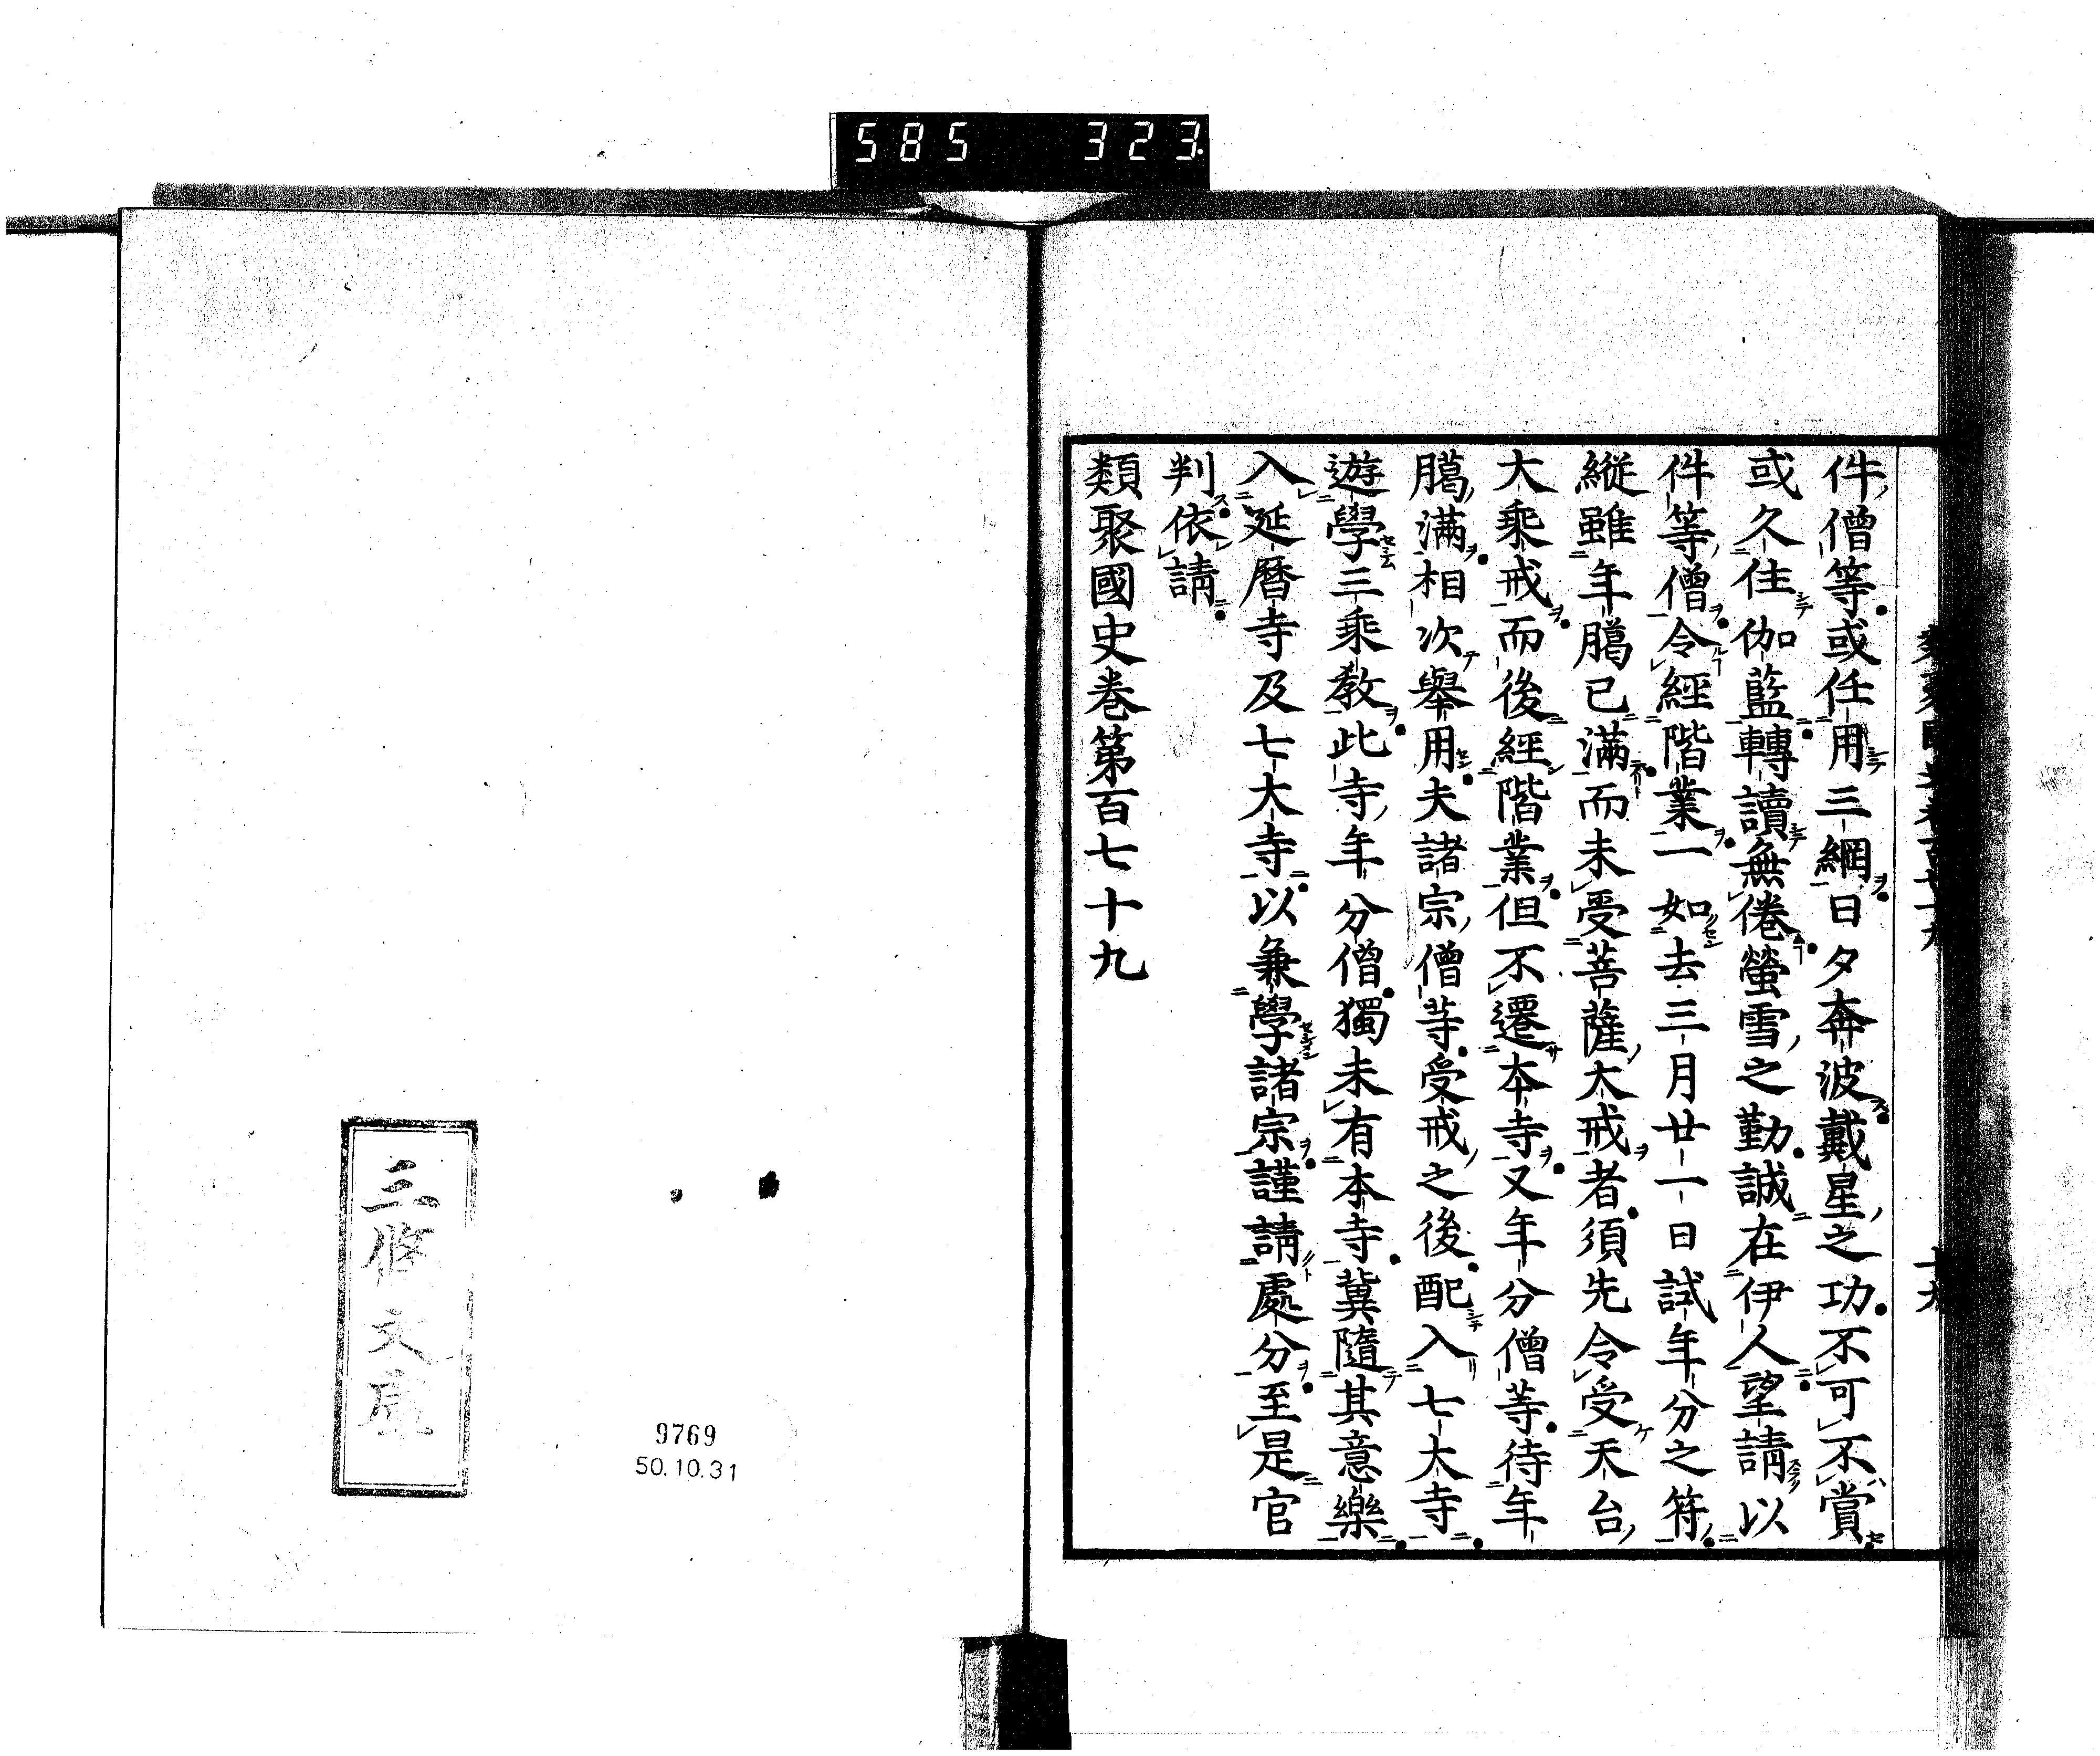 585 323
件僧等或任用三綱日夕奔波戴星之功不可不賞
或久住伽藍轉讀無倦螢雪之勤誠在伊人望請以
件等僧令經階業一如去三月廿一日試年分之符
縱雖年臈已滿而未受菩薩大戒者須先令受天台
大乘戒而後經階業但不遷本寺又年分僧等待年
臈滿相次舉用夫諸宗僧等受戒之後配入七大寺
遊學三乘教此寺年分僧獨未有本寺冀隨其意樂
入延暦寺及七大寺以兼學諸宗謹請處分至是官
判依請
類聚國史巻第百七十九
三條文庫
9769
50.10.31